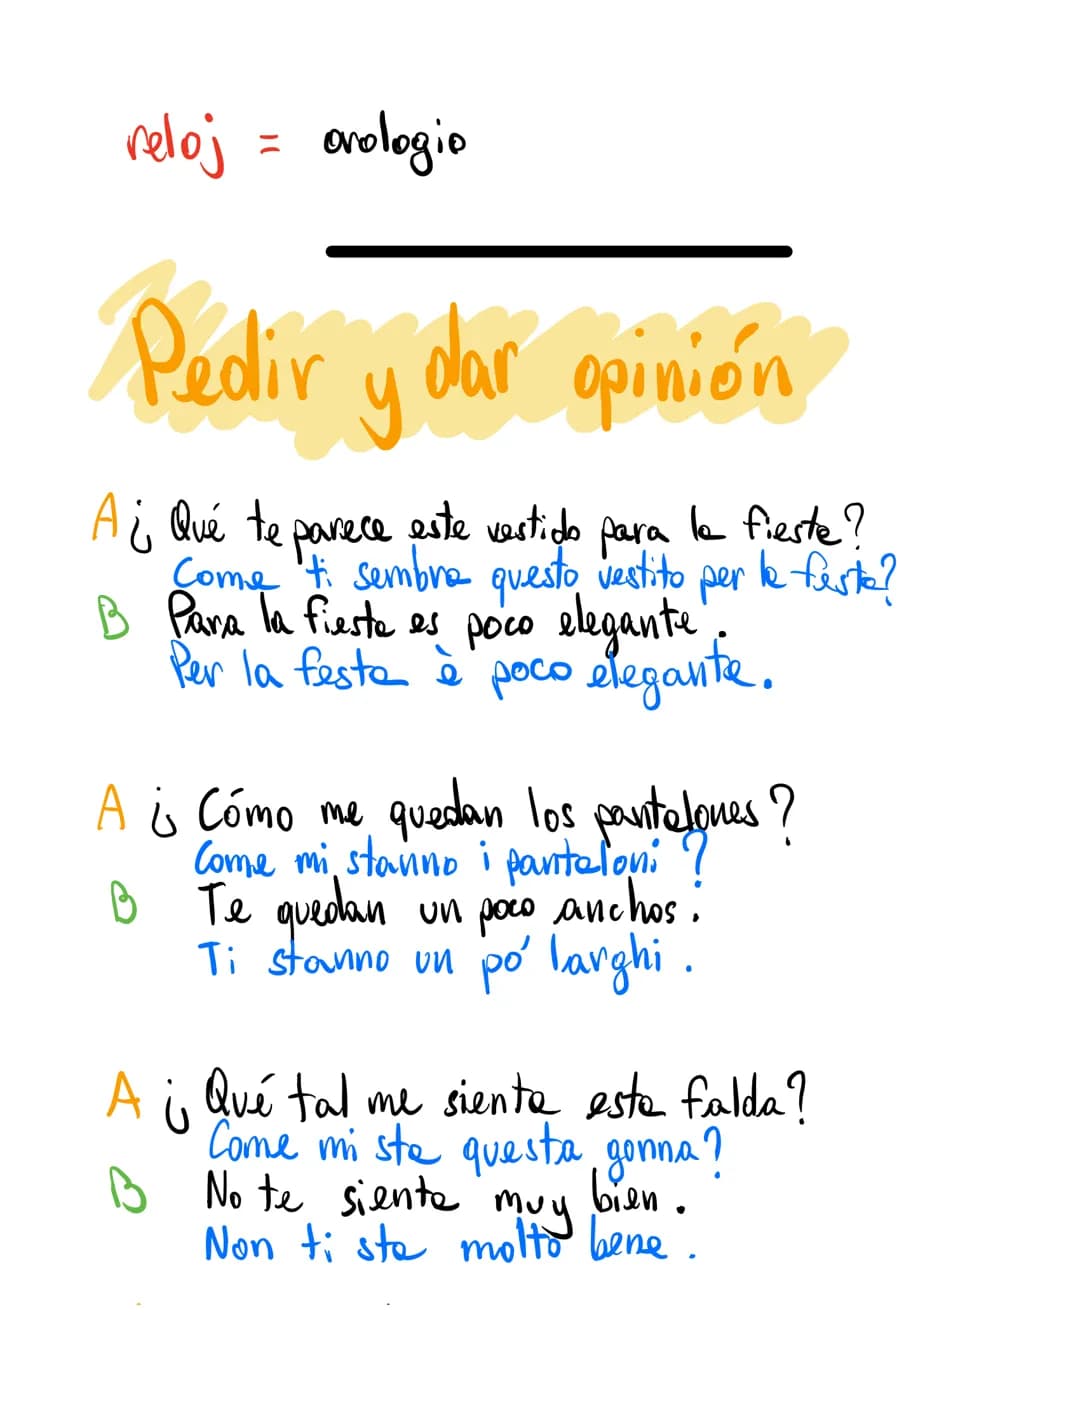 reloj = orologio
Pedir y dar opinión
A ¿Qué te parece este vestido para la fiesta?
Come ti sembra questo vestito per la festa?
B Para la fiesta es poco elegante.
Per la festa è poco elegante.
A ¿Cómo me quedan los pantalones?
Come mi stanno i pantaloni?
B Te quedan un poco anchos.
Ti stanno un po' larghi.
A ¿Qué tal me sienta esta falda?
Come mi sta questa gonna?
B No te sienta muy bien.
Non ti sta molto bene.